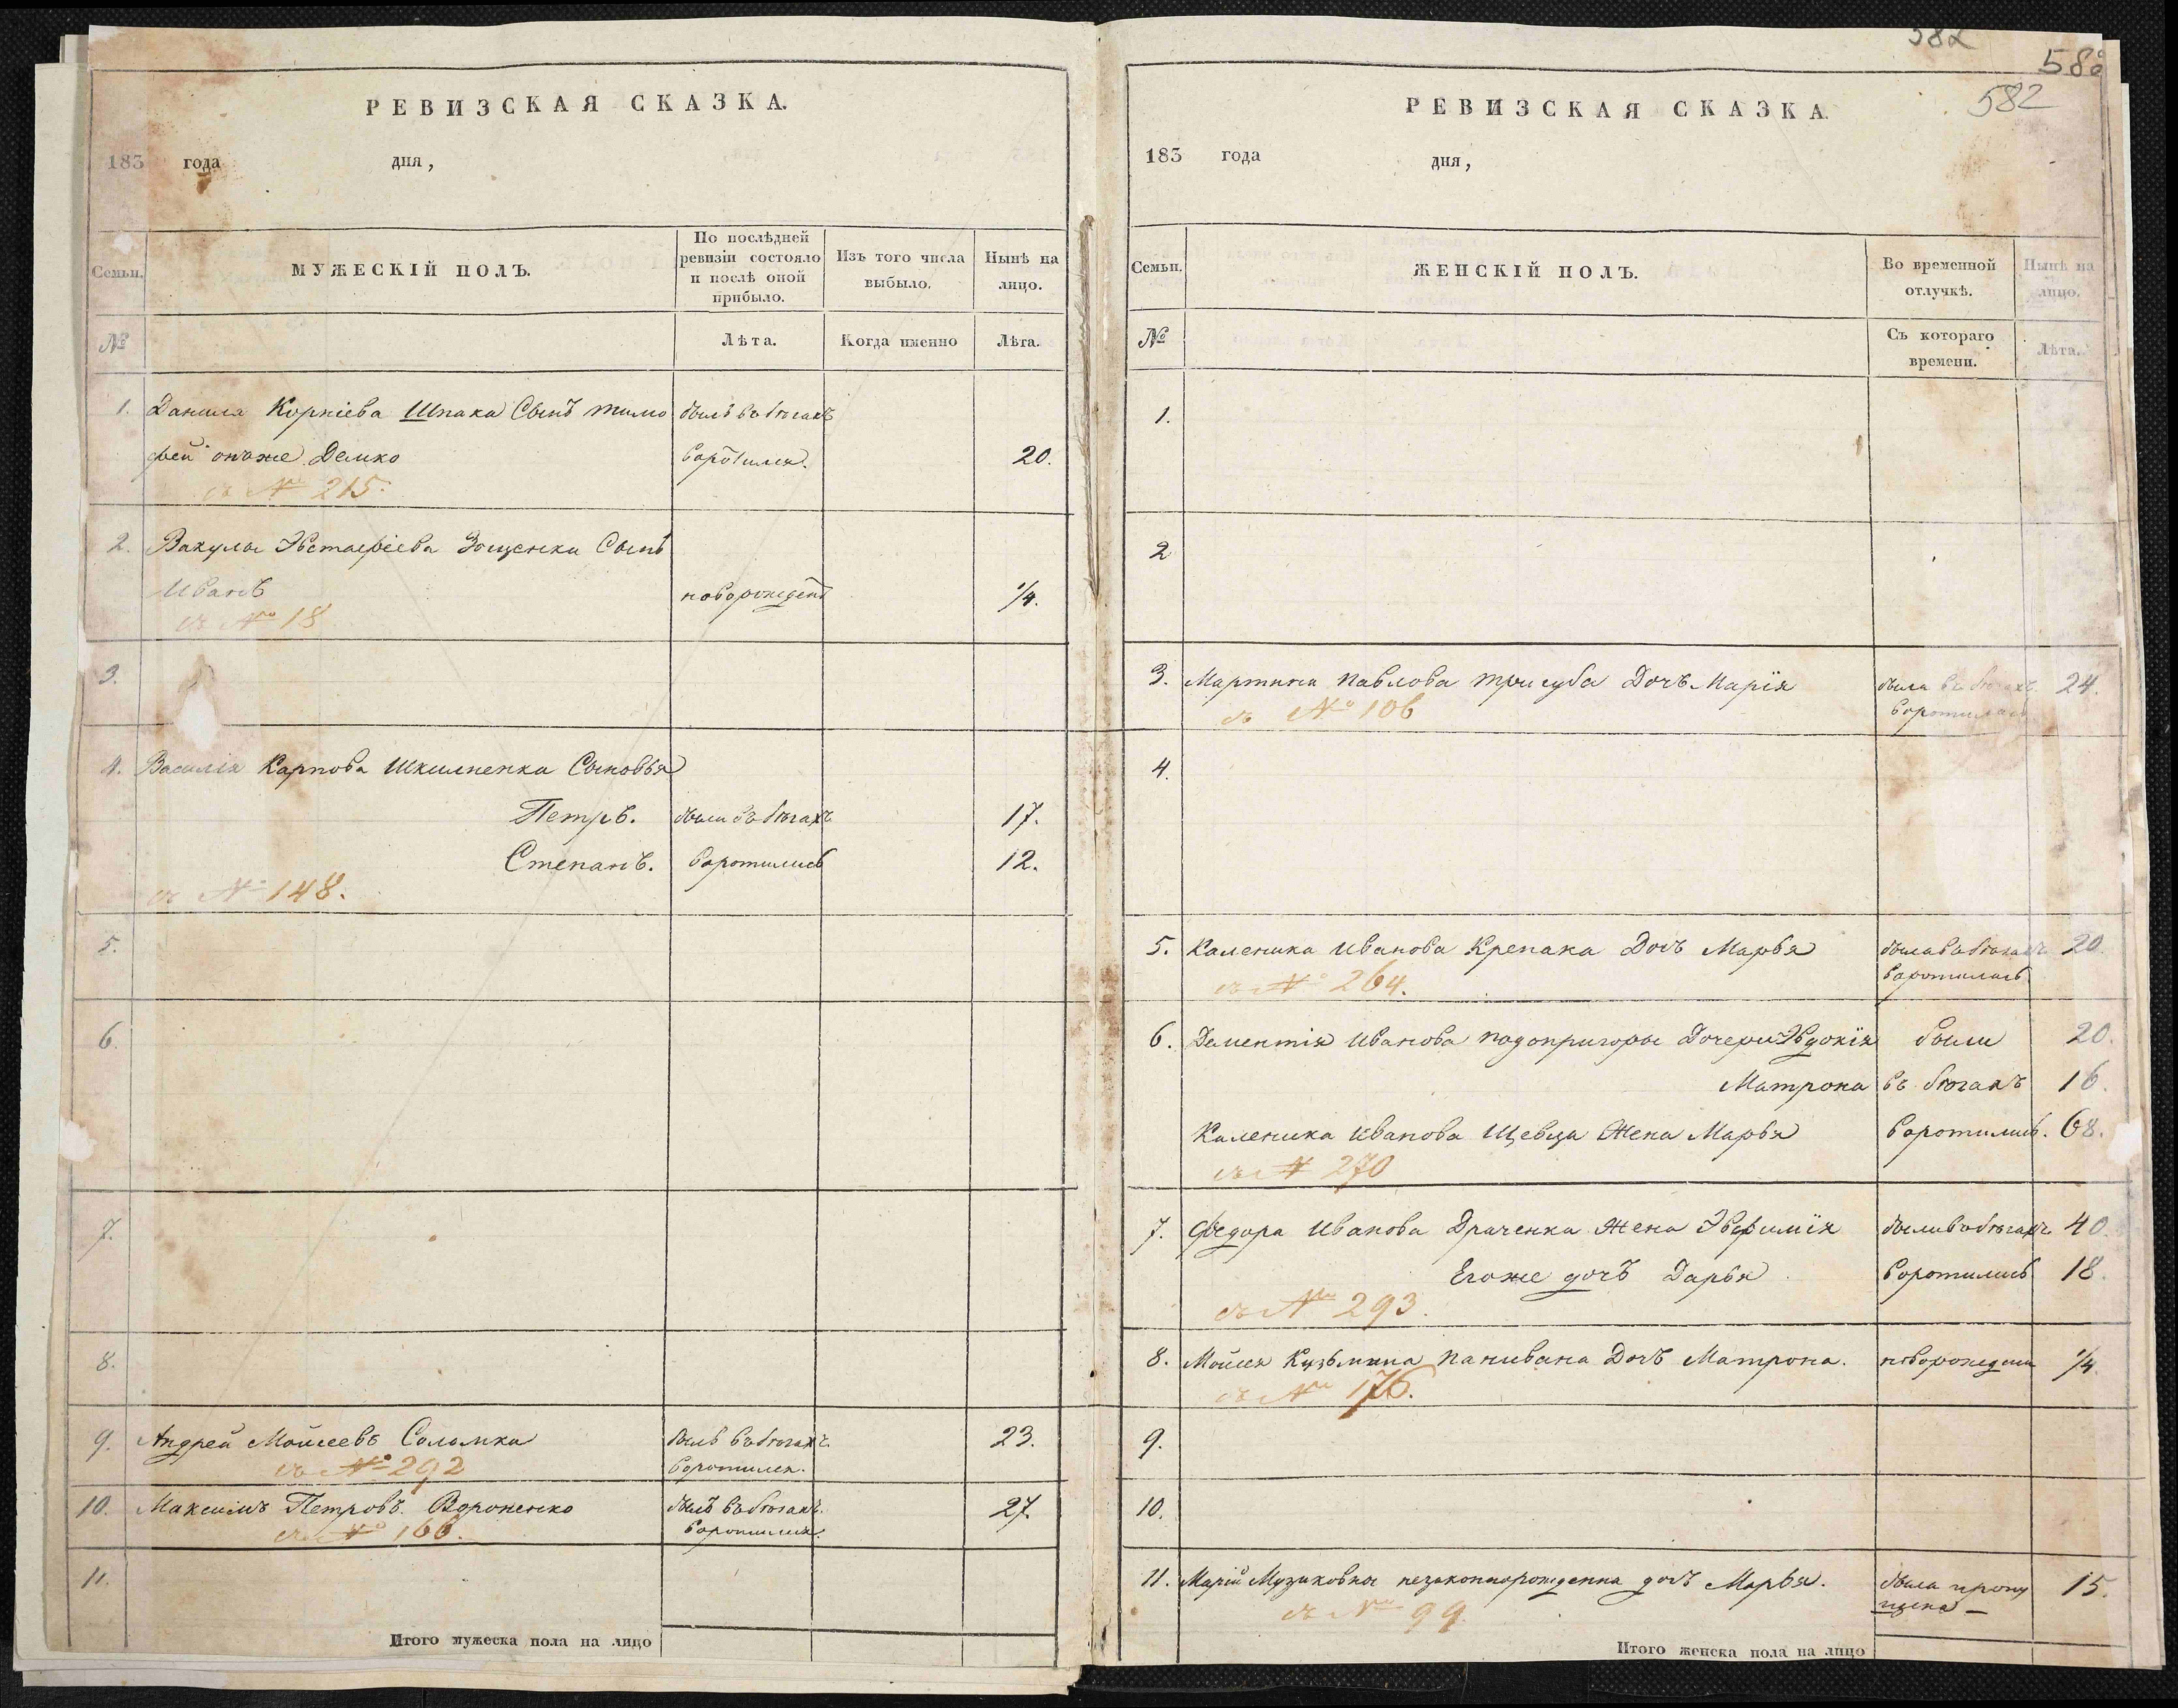 РЕВИЗСКАЯ СКАЗКА.
183 года дня,
Семьи.
МУЖЕСКІЙ ПОЛЪ.
По послѣдней ревизіи состояло и послѣ оной прибыло.
Изъ того числа выбыло.
Нынѣ на лицо.
№
Лѣта.
Когда именно
Лѣта.
1. Данила Корніева Шпака Сынъ Тимо былъ въ бѣгахъ
фей онъ же Демко воротился. 20.
съ № 215.
2. Вакулы Эвстафіева Зощенки Сынъ
Иванъ новорожденъ 1/4.
съ № 18
3.
4. Василія Карпова Шкилненка Сыновья
Петръ. были въ бѣгахъ 17.
Степанъ. воротились 12.
съ № 148.
5.
6.
7.
8.
9. Андрей Мойсеевъ Соломка былъ въ бѣгахъ 23.
съ № 292 воротился.
10. Максимъ Петровъ Вороненко былъ въ бѣгахъ 27.
съ № 166. воротился.
11.
Итого мужеска пола на лицо
582
580
582
РЕВИЗСКАЯ СКАЗКА.
183 года дня,
Семьи.
ЖЕНСКІЙ ПОЛЪ.
Во временной отлучкѣ.
Нынѣ на лицо.
№
Съ котораго времени.
Лѣта.
1.
2
3. Мартина Павлова Тригуба Дочъ Марія была въ бѣгахъ 24.
съ № 106 воротилась
4.
5. Каленика Иванова Крепака Дочъ Марья была въ бѣгахъ 20.
съ № 264. воротилась
6. Дементія Иванова Подопригоры Дочери Эвдокія были 20.
Матрона въ бѣгахъ 16.
Каленика Иванова Щевца Жена Марья воротились. 68.
съ № 270
7. Федора Иванова Драченка Жена Эвфимія были въ бѣгахъ 40.
Егоже дочъ Дарья воротились 18.
съ № 293.
8. Мойсея Кузьмина Панивана Дочъ Матрона. новорожденна 1/4.
съ № 176.
9.
10.
11. Марій Музиковны незаконнорожденна дочъ Марья. была пропу 15.
щена —
съ № 99.
Итого женска пола на лицо